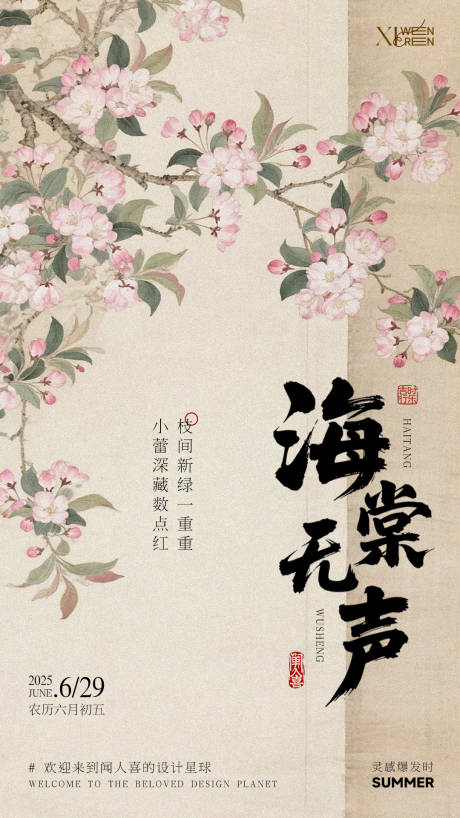 XI WEN REN
海棠无声
HAITANG
WUSHENG
枝间新绿一重重
小蕾深藏数点红
闻人喜
2025
JUNE.6/29
农历六月初五
# 欢迎来到闻人喜的设计星球
WELCOME TO THE BELOVED DESIGN PLANET
灵感爆发时
SUMMER